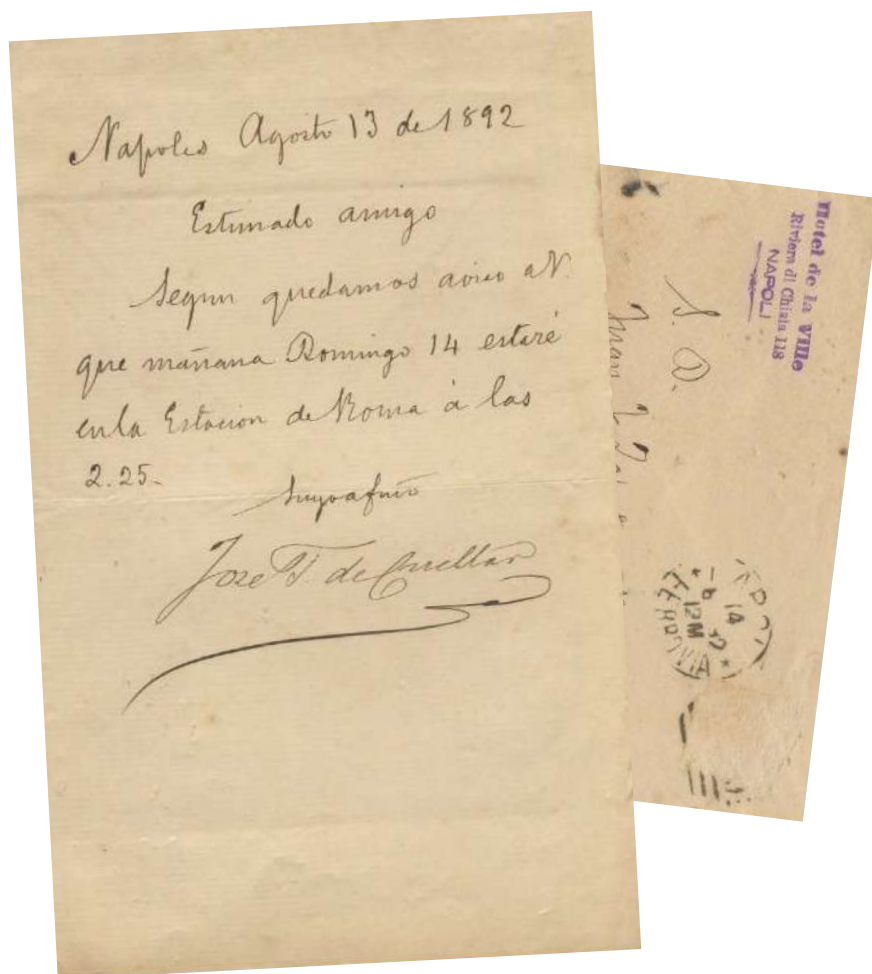 Napoles Agosto 13 de 1892
Estimado amigo
Segun quedamos aviso a V.
que mañana Domingo 14 estaré
en la Estacion de Roma á las
2.25.
Suyo afmo
Jose T. de Cuellar
Hotel de la Ville
Riviera di Chiaia 118
NAPOLI
S. D.
Juan
14
12M
FERROVIA